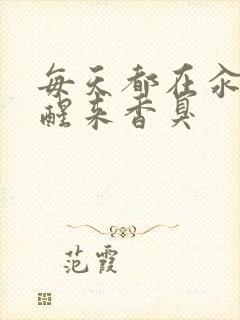 每天都在汆
醒来香臭
范霞